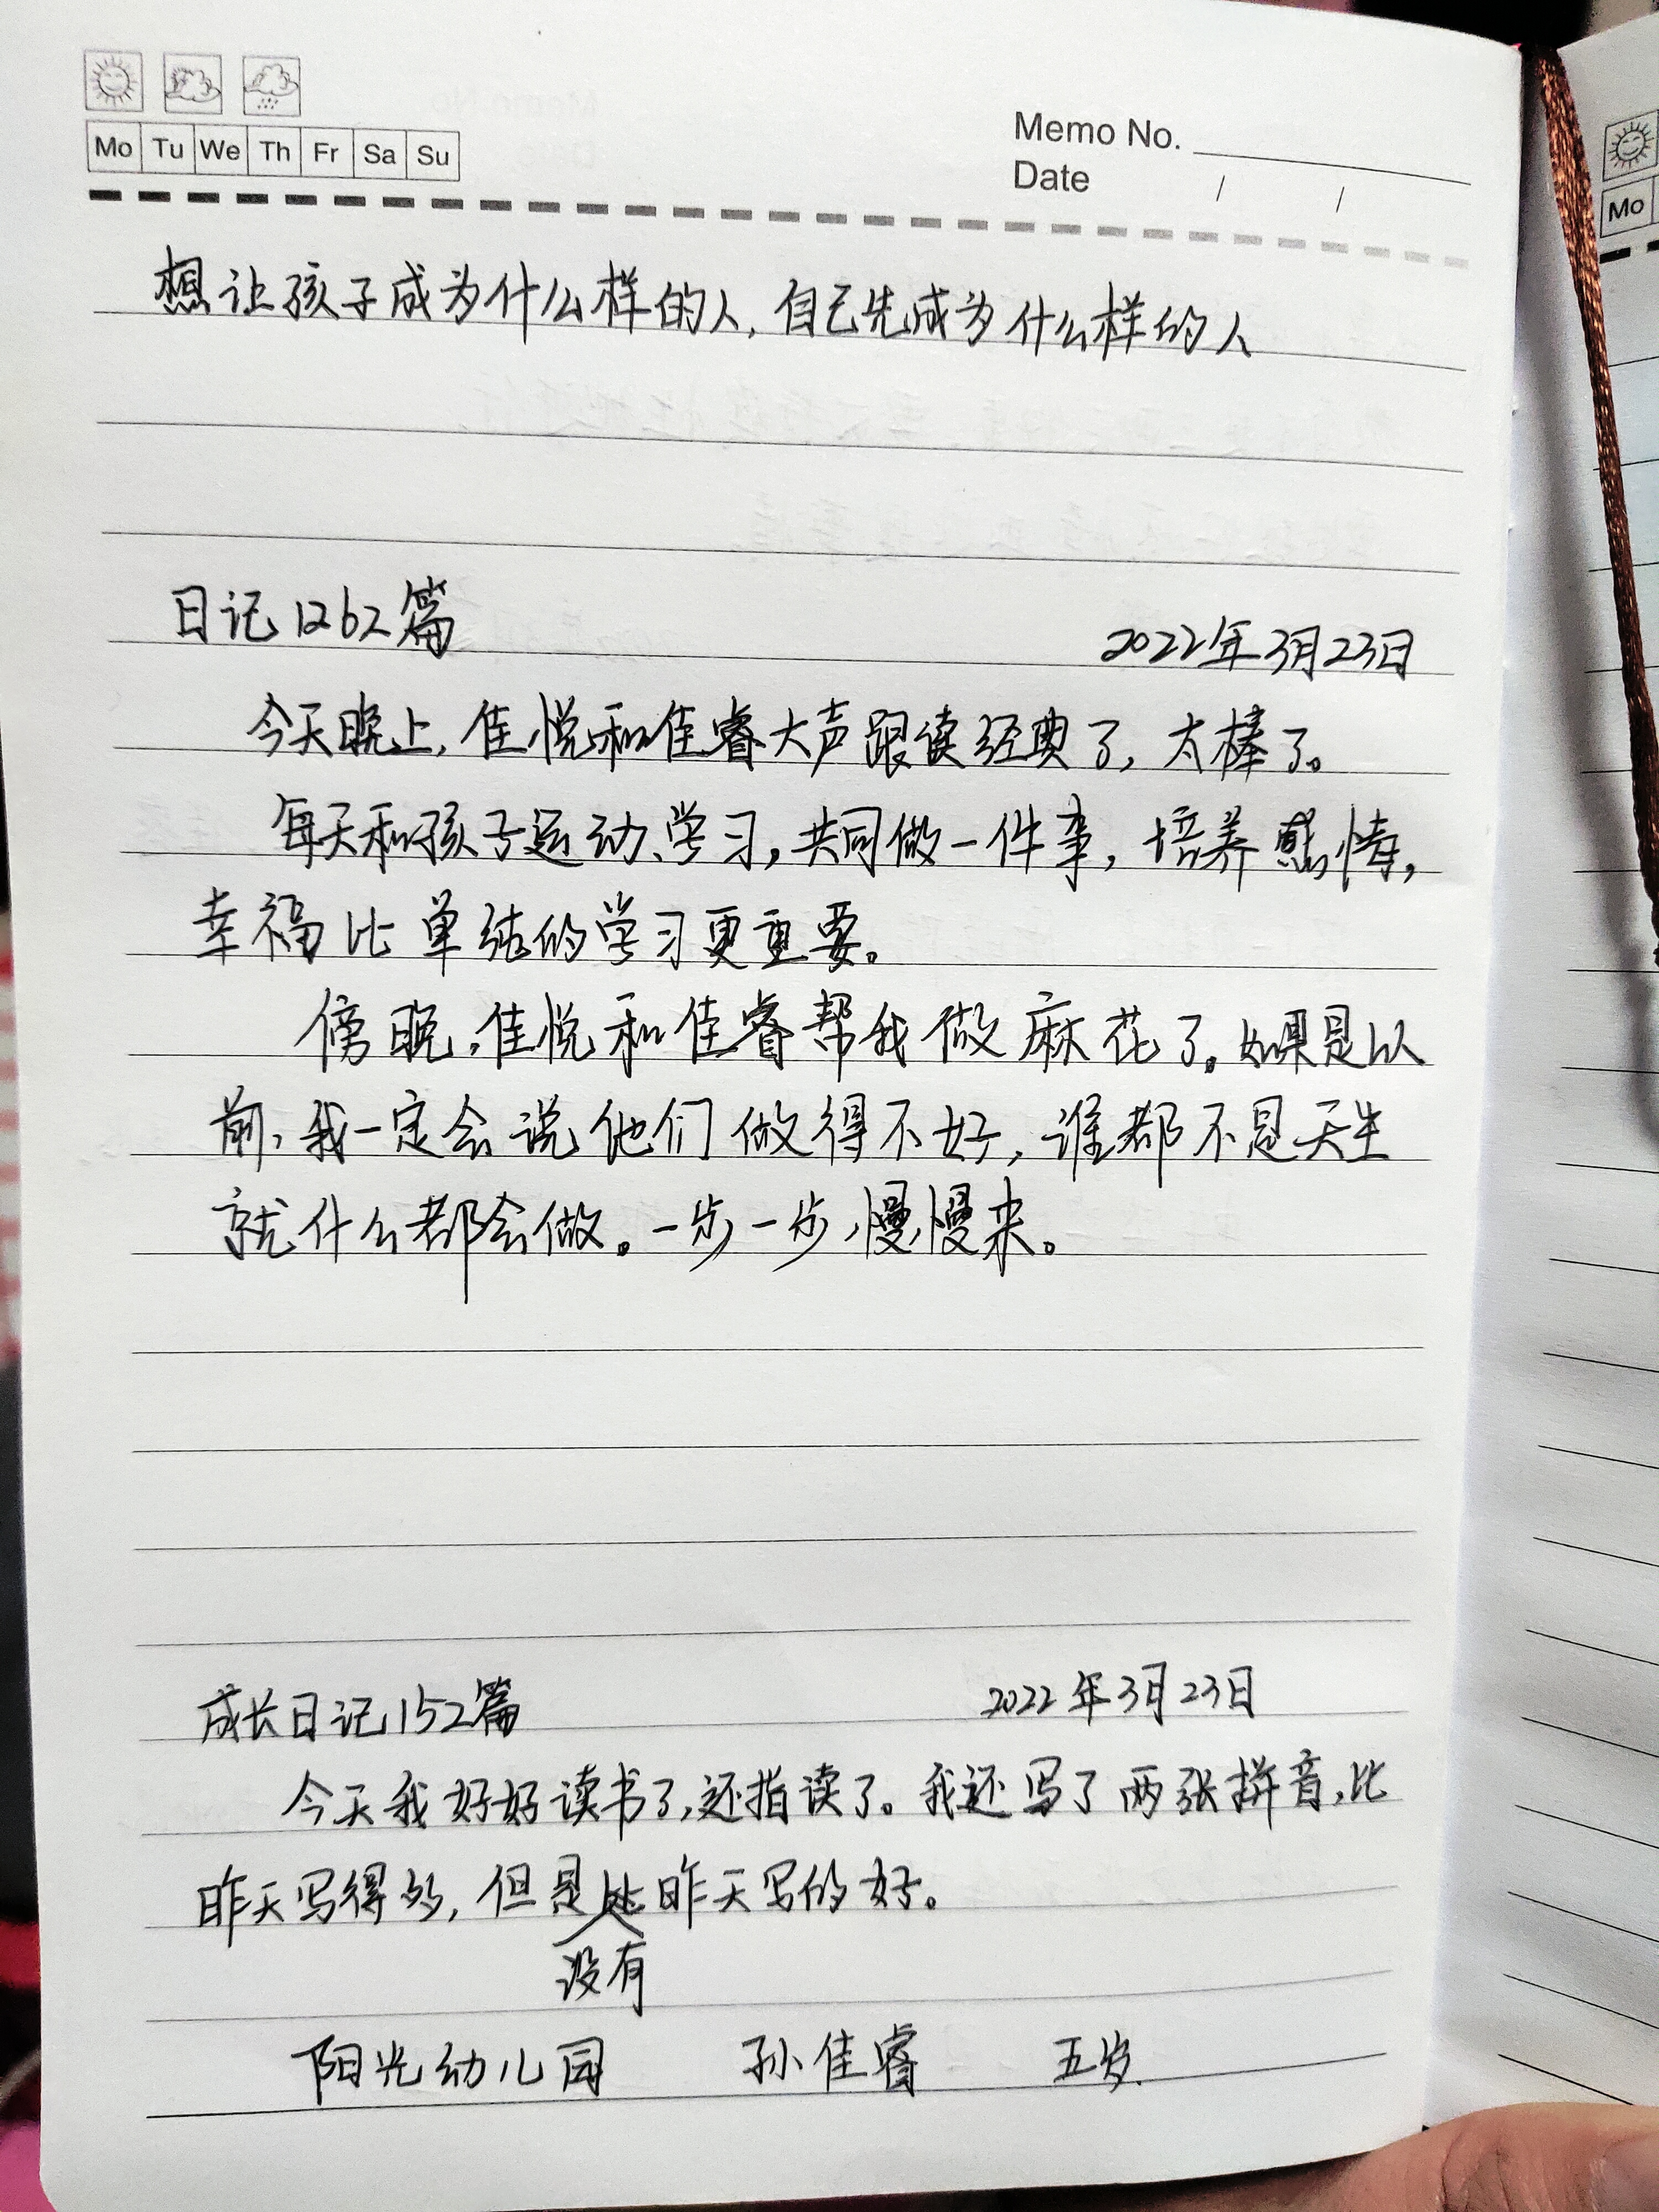 Mo Tu We Th Fr Sa Su
Memo No.
Date / /
想让孩子成为什么样的人,自己先成为什么样的人
日记1262篇 2022年3月23日
今天晚上,佳悦和佳睿大声跟读经典了,太棒了。
每天和孩子运动、学习,共同做一件事,培养感情,
幸福比单纯的学习更重要。
傍晚,佳悦和佳睿帮我做麻花了。如果是以
前,我一定会说他们做得不好,谁都不是天生
就什么都会做。一步一步,慢慢来。
成长日记152篇 2022年3月23日
今天我好好读书了,还指读了。我还写了两张拼音,比
昨天写得多,但是比昨天写的好。
没有
阳光幼儿园 孙佳睿 五岁.
Mo